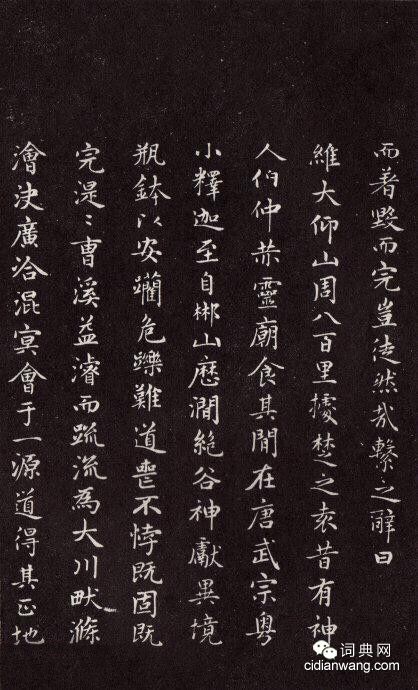 而著毀而完豈徒然哉繫之辭曰
維大仰山周八百里據楚之袁昔有神
人伯仲恭靈廟食其間在唐武宗粵
小釋迦至自郴山歷澗絕谷神獻異境
瓶鉢以安躪危躒難道喪不悖既固既
完湜〻曹溪益濬而疏流為大川畎滌
澮決廣洽混冥會于一源道得其正地
词典网
cidianwang.com